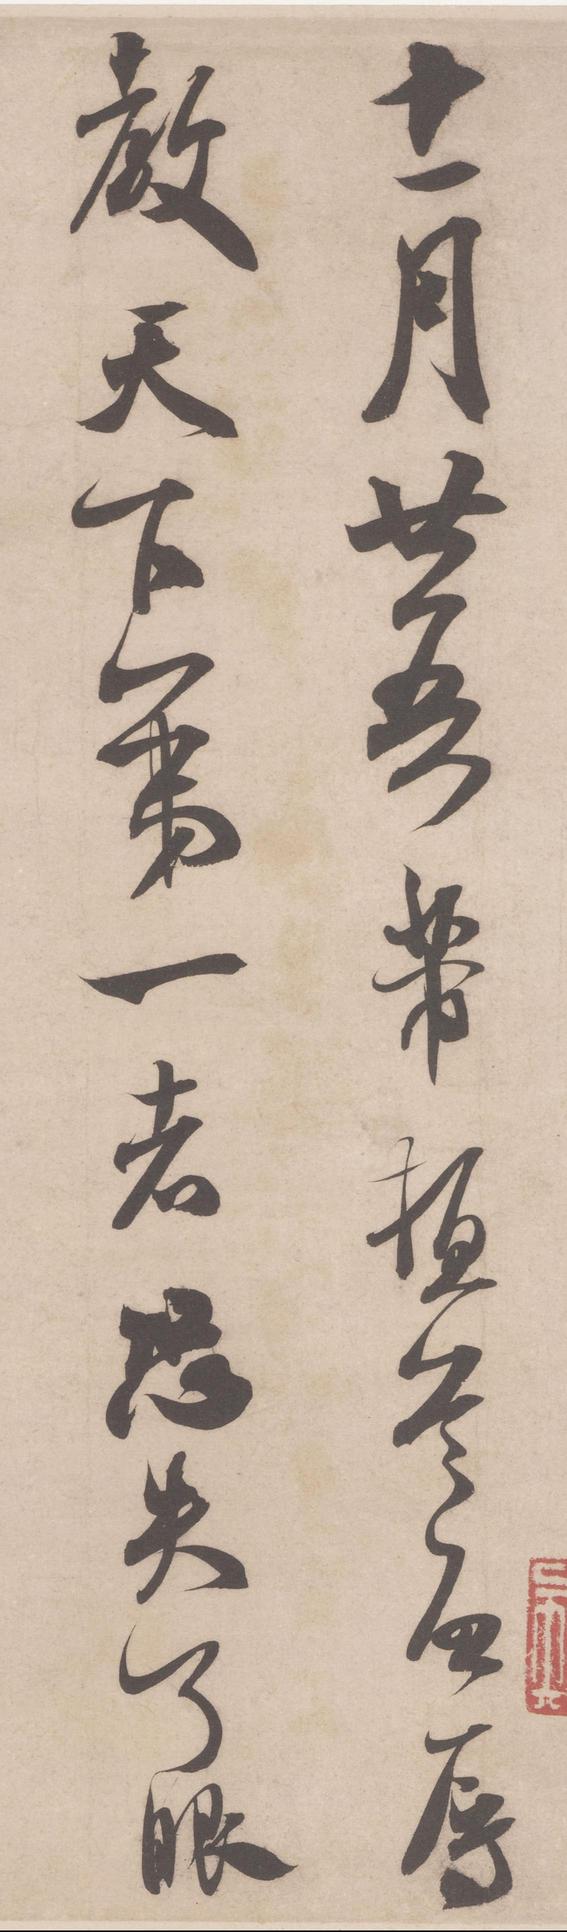 十一月廿五日芾頓首啟辱
教天下第一者恐失了眼